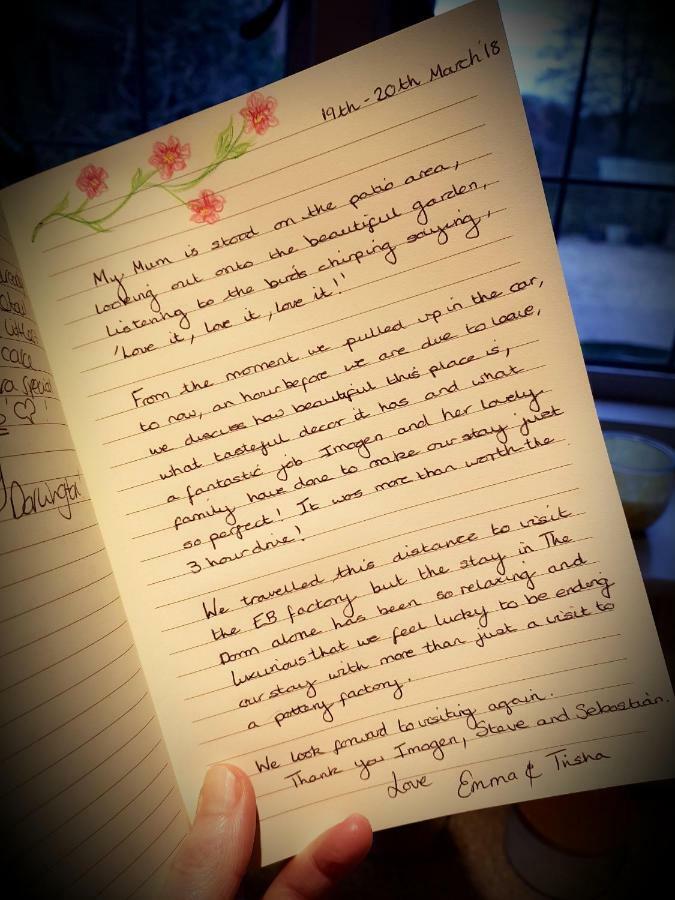 19th - 20th March '18
My Mum is stood on the patio area,
looking out onto the beautiful garden,
listening to the birds chirping saying,
'Love it, love it, love it!'
From the moment we pulled up in the car,
to now, an hour before we are due to leave,
we discuss how beautiful this place is,
what tasteful decor it has and what
a fantastic job Imogen and her lovely
family have done to make our stay just
so perfect! It was more than worth the
3 hour drive!
We travelled this distance to visit
the EB factory but the stay in The
Dorm alone has been so relaxing and
luxurious that we feel lucky to be ending
our stay with more than just a visit to
a pottery factory.
We look forward to visiting again.
Thank you Imogen, Steve and Sebastian.
Love Emma & Trisha
Little
special